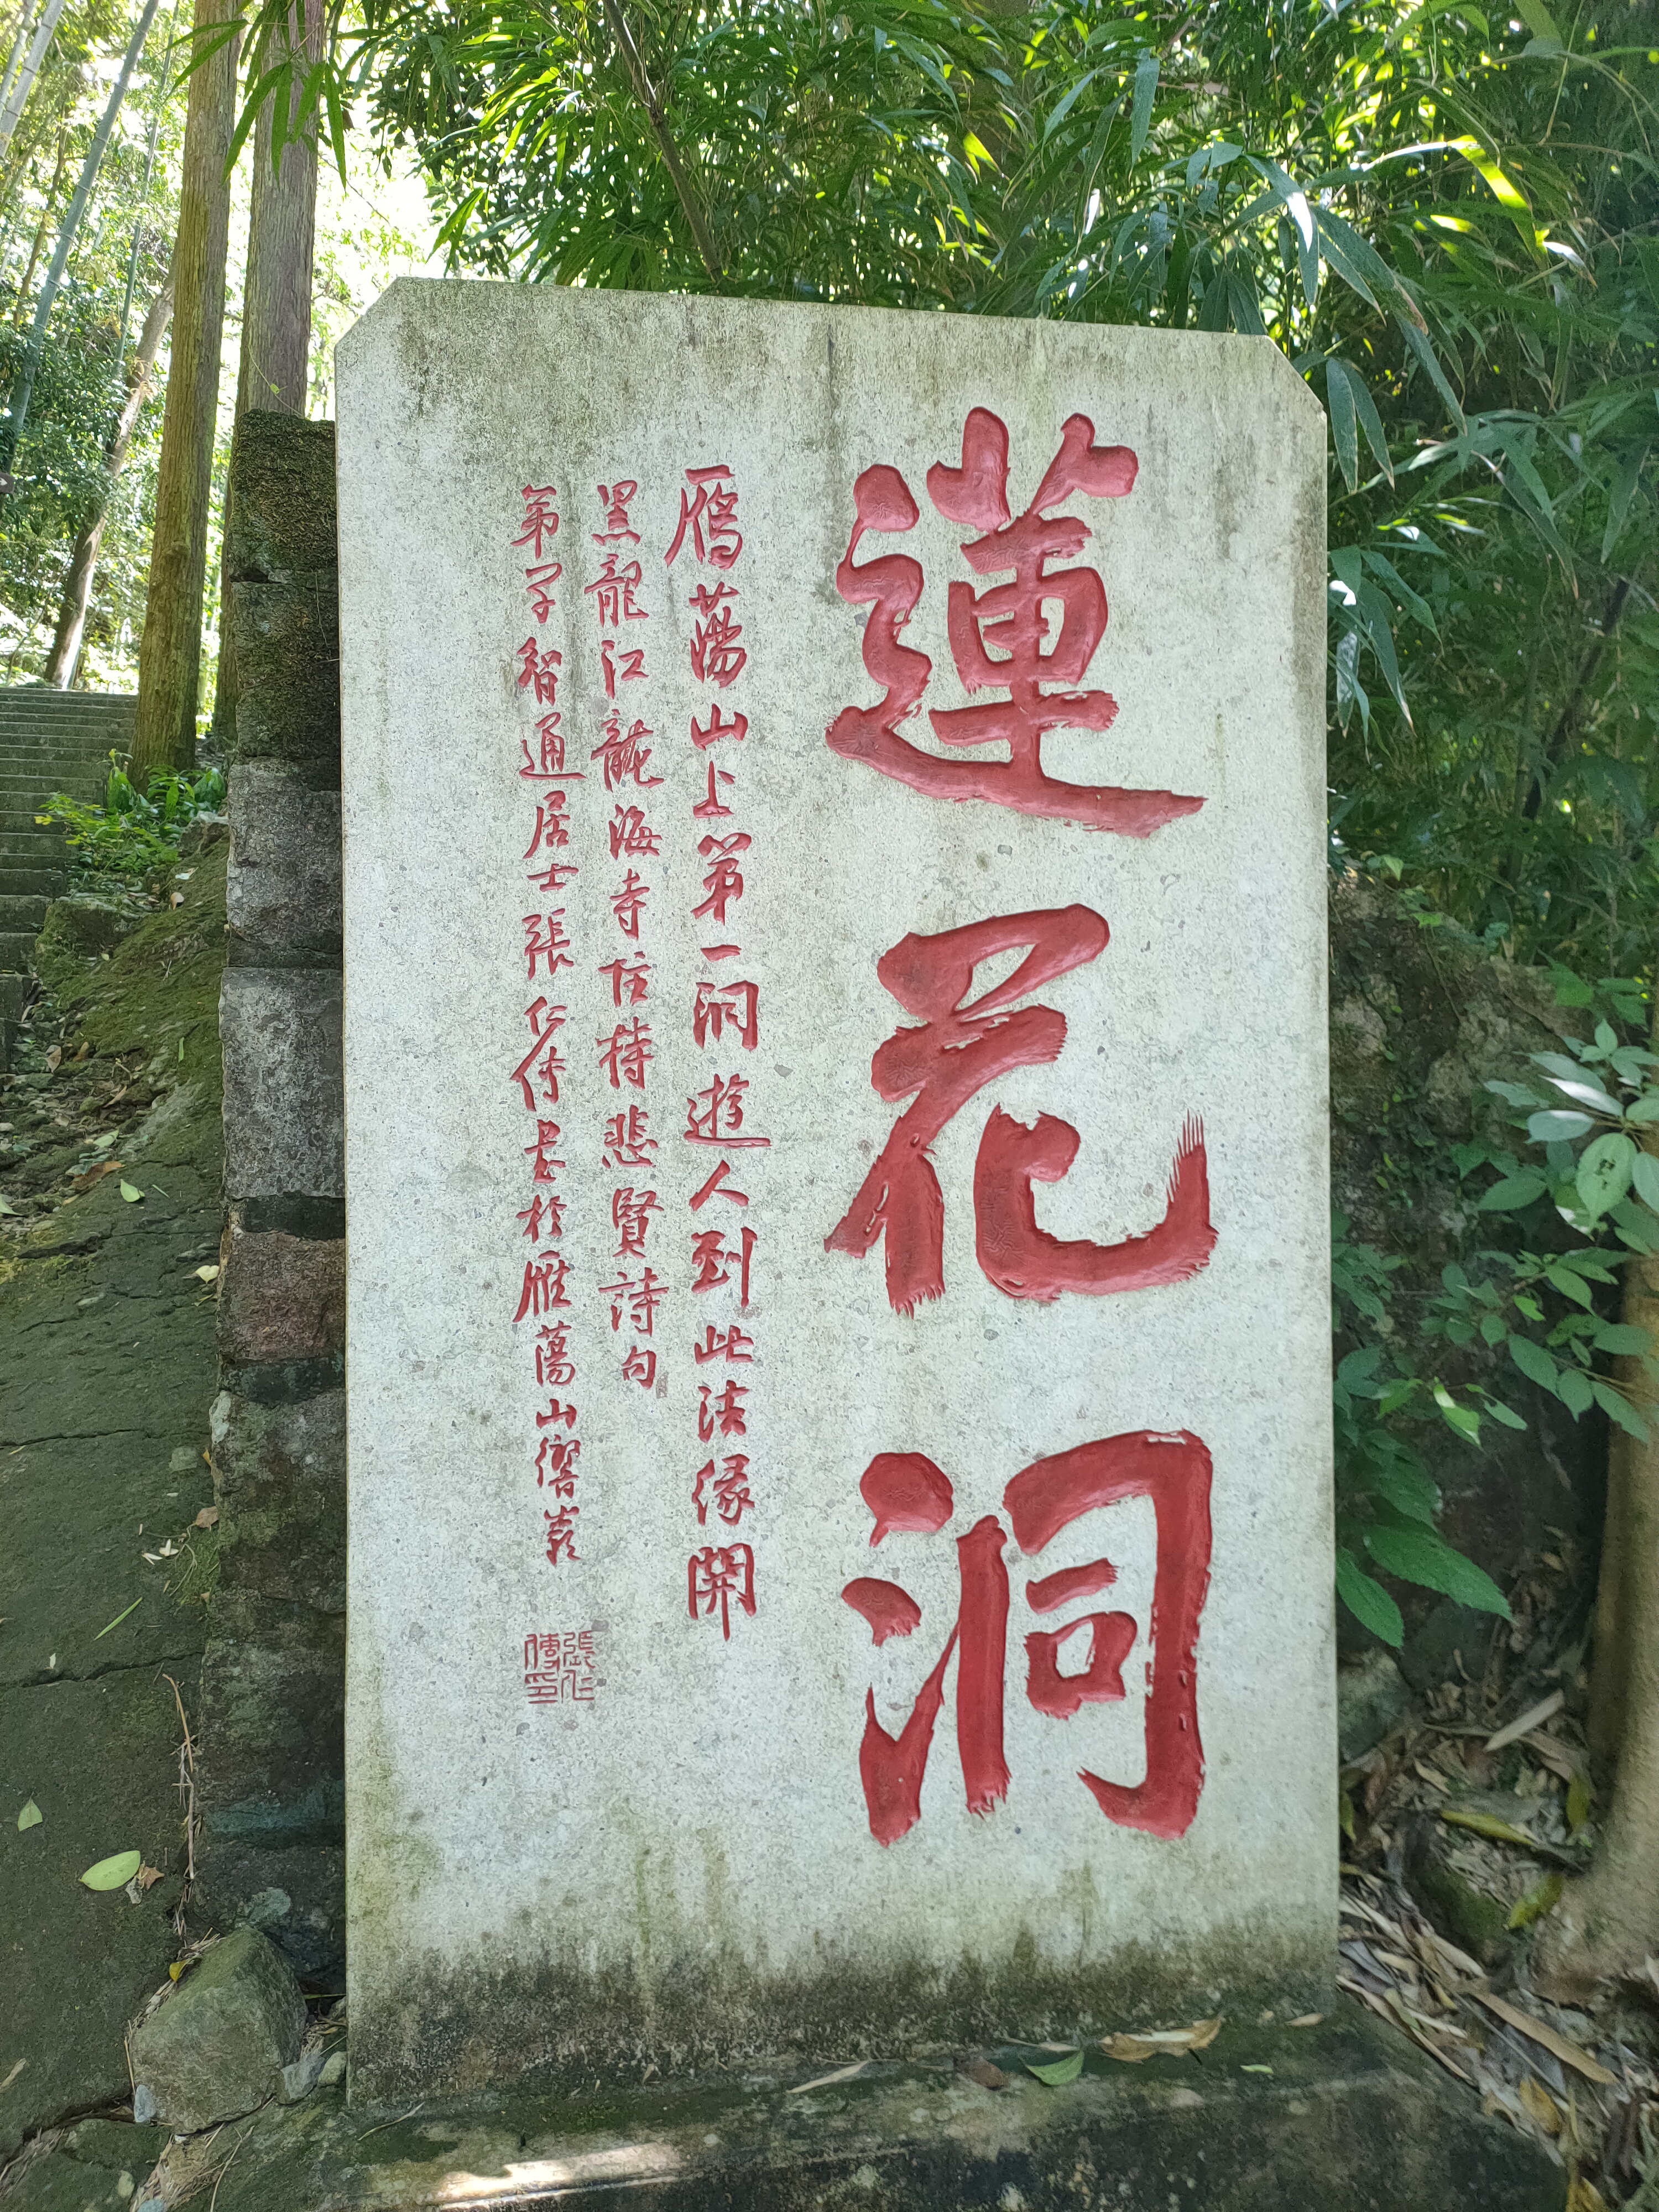 蓮花洞
鴈蕩山上第一洞遊人到此法緣開
黑龍江龍海寺住持悲賢詩句
第子智通居士張仁傳書於雁蕩山響
張仁傳印